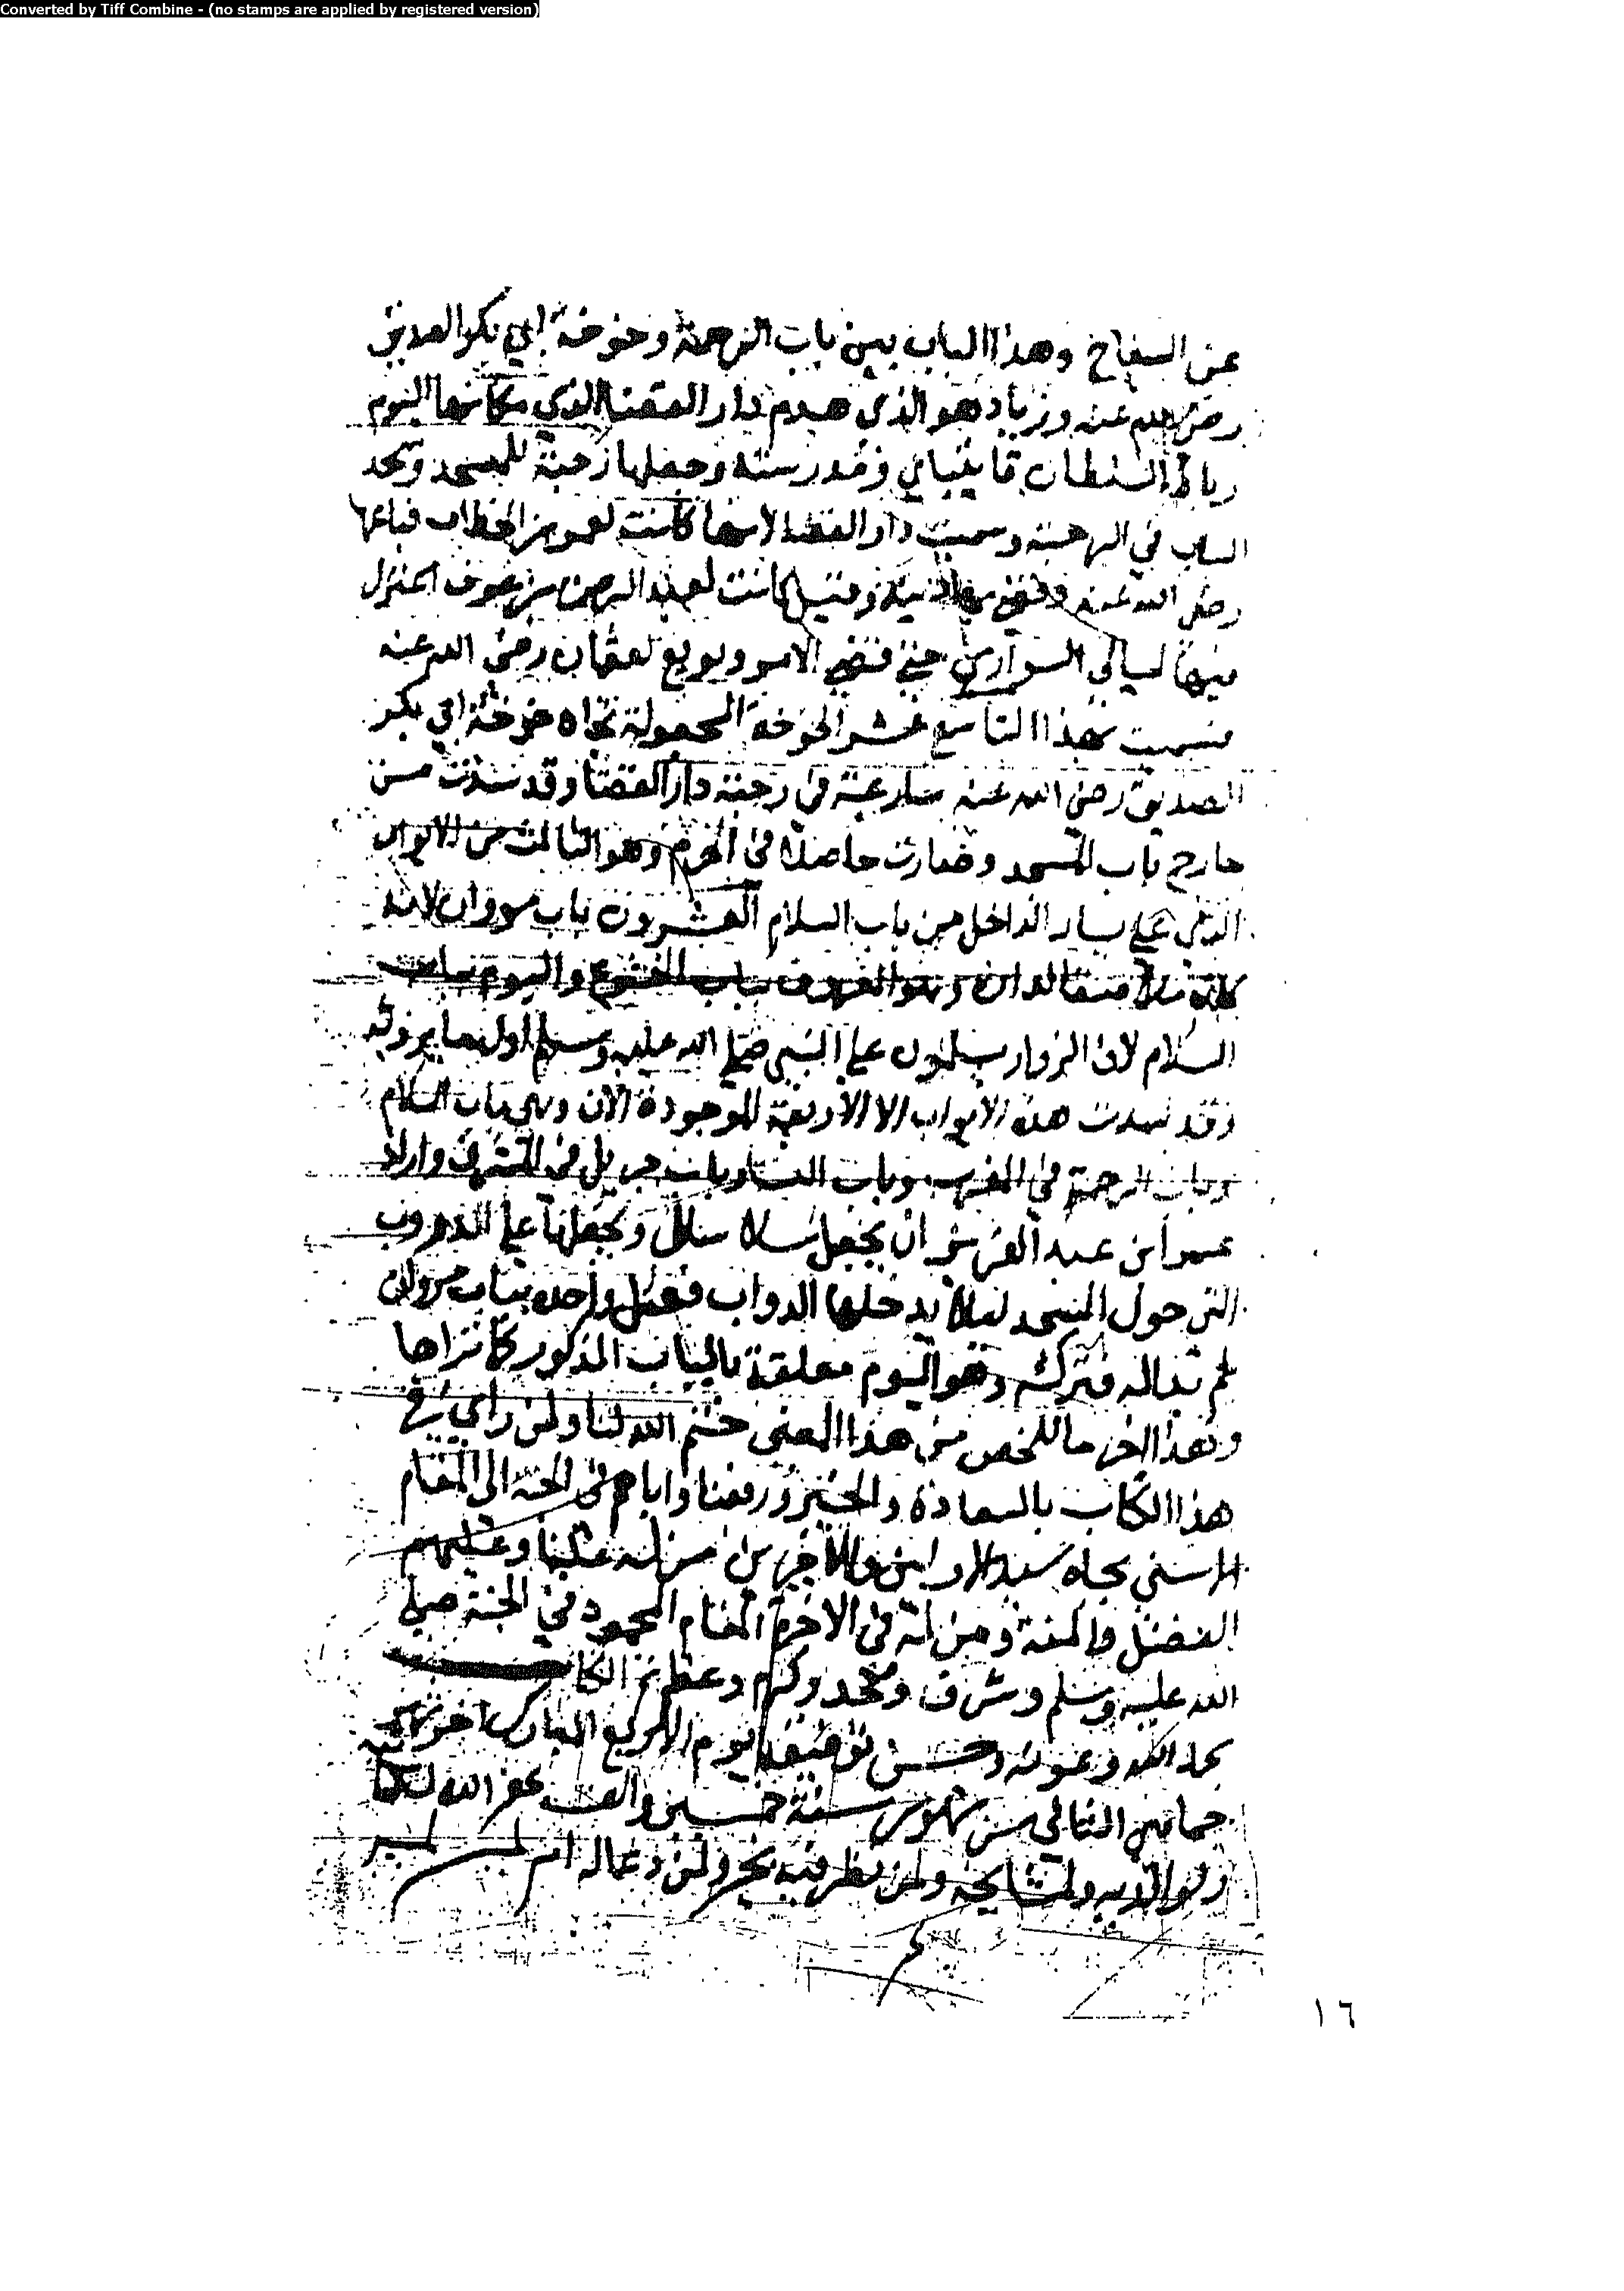 Converted by Tiff Combine - (no stamps are applied by registered version)
عن السفاح وهذا الباب بين باب الرحمة وخوخة ابي بكر الصديق
رضي الله عنه وزياد هو الذي هدم دار القضا الذي مكانها اليوم
رباط السلطان قايتباي ومدرسته وجعلها رحبة للمسجد
الباب في الرحبة وسميت دار القضا لانها كانت لعمر بن الخطاب فباعها
رضي الله عنه وقيل كانت لعبد الرحمن بن عوف اعتزل
فيها ليالي الشوارى حتى قضي الامر وبويع لعثمان رضي الله عنه
فسميت بهذا التاسع عشر الخوخة المجعولة تجاه خوخة ابي بكر
الصديق رضي الله عنه شارعة في رحبة دار القضا وقد سدت من
خارج باب المسجد وصارت حاصلا في الحرم وهو الثالث من الابواب
التي على يسار الداخل من باب السلام العشرون باب مروان لانه
كان ملاصقا لداره وهو المعروف بباب الخشوع واليوم بباب
السلام لان الزوار يسلمون على النبي صلى الله عليه وسلم اول ما
وقد سدت هذه الابواب الا الاربعة الموجودة الان وهي باب السلام
وباب الرحمة في المغرب وباب النسا وباب جبريل في المشرق واراد
عمر ابن عبد العزيز ان يجعل سلاسل ويجعلها على الدروب
التي حول المسجد ليلا يدخلها الدواب فعمل واحدة بباب مروان
ثم بدا له فتركه وهو اليوم معلقة بالباب المذكور كما تراها
وهذا اخر ما تلخص من هذا المعنى ختم الله لنا ولمن راى في
هذا الكتاب بالسعادة والخير ورفعنا واياهم في الجنة الى المقام
السني بجاه سيد الاولين والاخرين من له علينا وعليهم
الفضل والمنة ومن له في الاخرة المقام المحمود في الجنة صلى
الله عليه وسلم وشرف ومجد وكرم وعظم تم الكتاب
بحمد الله وعونه وحسن توفيقه يوم الاربع المبارك اخر شهر
جمادي الثاني من شهور سنة خمسين والف غفر الله لكاتبه
ولوالديه ولمشايخه ولمن نظر فيه بخير ولمن دعا له امين
١٦